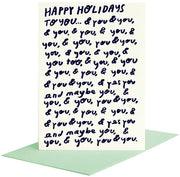 HAPPY HOLIDAYS
TO YOU... & you & you,
& you, & you, & you, & you,
you, & you & you, & you,
& you, & you, & you, &
you too, & you, & you
& you, & you, & you,
you, & you, & you & you,
& you, & you, & you, &
you & you, & yes you
and maybe you, &
you, & you, you & you,
& you, & you, & you, &
you & you, & yes you
and maybe you, &
you, & you, you & you.